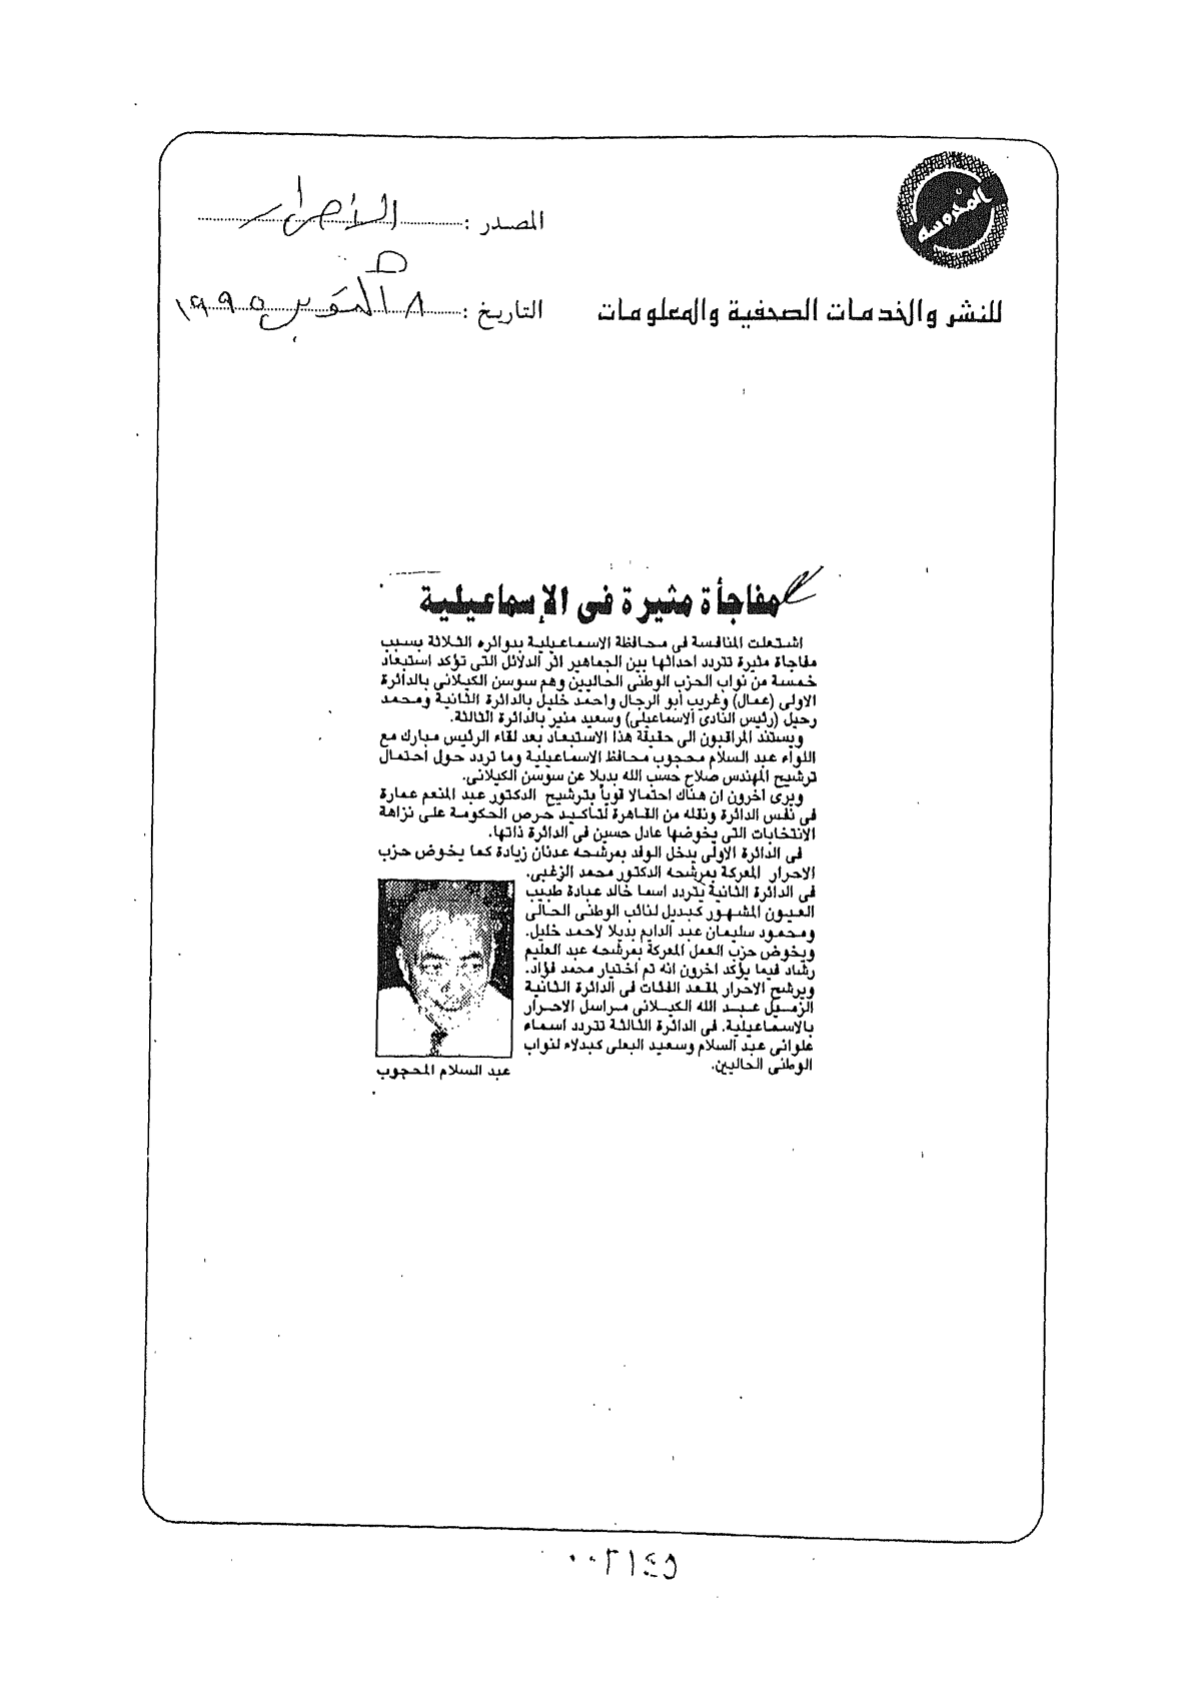 المحروسة
المصدر : الأحرار
للنشر والخدمات الصحفية والمعلومات
التاريخ : ٨ أكتوبر ١٩٩٥
مفاجأة مثيرة فى الإسماعيلية
اشتعلت المنافسة فى محافظة الاسماعيلية بدوائره الثلاثة بسبب
مفاجاة مثيرة تتردد احداثها بين الجماهير اثر الدلائل التى تؤكد استبعاد
خمسة من نواب الحزب الوطنى الحاليين وهم سوسن الكيلانى بالدائرة
الاولى (عمال) وغريب أبو الرجال واحمد خليل بالدائرة الثانية ومحمد
رحيل (رئيس النادى الاسماعيلى) وسعيد منير بالدائرة الثالثة.
ويستند المراقبون الى حقيقة هذا الاستبعاد بعد لقاء الرئيس مبارك مع
اللواء عبد السلام محجوب محافظ الاسماعيلية وما تردد حول احتمال
ترشيح المهندس صلاح حسب الله بديلا عن سوسن الكيلانى.
ويرى اخرون ان هناك احتمالا قوياً بترشيح الدكتور عبد المنعم عمارة
فى نفس الدائرة ونقله من القاهرة لتأكيد حرص الحكومة على نزاهة
الانتخابات التى يخوضها عادل حسين فى الدائرة ذاتها.
فى الدائرة الاولى يدخل الوفد بمرشحه عدنان زيادة كما يخوض حزب
الاحرار المعركة بمرشحه الدكتور محمد الزغبى.
فى الدائرة الثانية يتردد اسما خالد عبادة طبيب
العيون المشهور كبديل لنائب الوطنى الحالى
ومحمود سليمان عبد الدايم بديلا لاحمد خليل.
ويخوض حزب العمل المعركة بمرشحه عبد العليم
رشاد فيما يؤكد اخرون انه تم اختيار محمد فؤاد.
ويرشح الاحرار لمقعد الفئات فى الدائرة الثانية
الزميل عبد الله الكيلانى مراسل الاحرار
بالاسماعيلية. فى الدائرة الثالثة تتردد اسماء
علوانى عبد السلام وسعيد البعلى كبدلاء لنواب
الوطنى الحاليين.
عبد السلام المحجوب
٠٠٢١٤٥